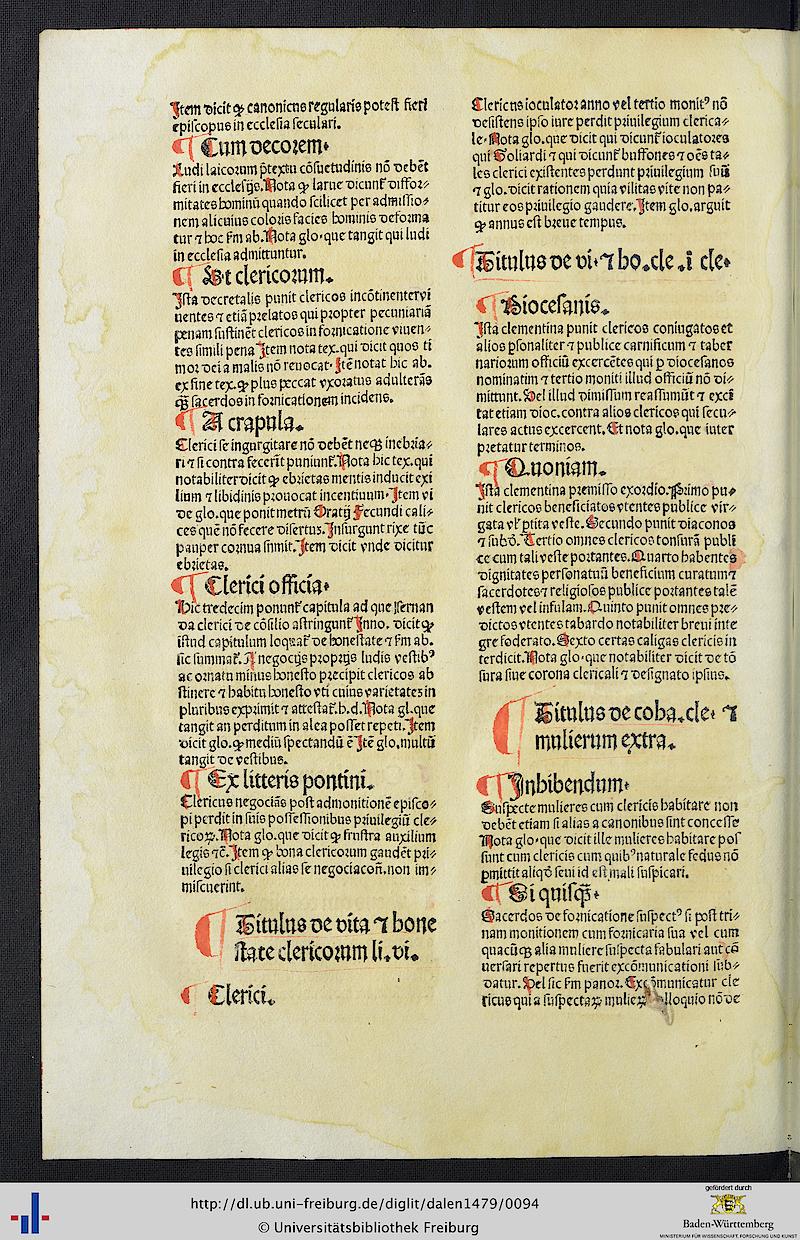 Item dicit ꝙ canonicus regularis potest fieri
episcopus in ecclesia seculari.
¶ Cum decorem.
Ludi laicorum p̄textu cōsuetudinis nō debēt
fieri in ecclesijs. Nota ꝙ larue dicunt᷑ diffor⸗
mitates hominū quando scilicet per admissio⸗
nem alicuius coloris facies hominis deforma
tur ⁊ hoc fm ab. Nota glo. que tangit qui ludi
in ecclesia admittuntur.
¶ Ut clericorum.
Ista decretalis punit clericos incōtinenter vi
uentes ⁊ etiā prelatos qui propter pecuniariā
penam sustinēt clericos in fornicatione viuen⸗
tes simili pena Item nota tex. qui dicit quos ti
mor dei a malis nō reuocat. Itē notat hic ab.
ex fine tex. ꝙ plus peccat vxoratus adulterās
ꝗ̄ sacerdos in fornicationem incidens.
¶ A crapula.
Clerici se ingurgitare nō debēt neqꝫ inebria⸗
ri ⁊ si contra fecerīt puniunt᷑. Nota hic tex. qui
notabiliter dicit ꝙ ebrietas mentis inducit exi
lium ⁊ libidinis prouocat incentiuum. Item vi
de glo. que ponit metrū Oratij Fecundi cali⸗
ces quē nō fecere disertuꝫ. Insurgunt rixe tūc
pauper cornua sumit. Item dicit vnde dicitur
ebrietas.
¶ Clerici officia.
Hic tredecim ponunt᷑ capitula ad que seruan
da clerici de cōsilio astringunt᷑ Inno. dicit ꝙ
istud capitulum loquat᷑ de honestate ⁊ fm ab.
sic summat᷑. A negocijs proprijs ludis vestibꝰ
ac ornatu minus honesto precipit clericos ab
stinere ⁊ habitu honesto vti cuius varietates in
pluribus exprimit ⁊ attestat᷑. h. d. Nota gl. que
tangit an perditum in alea posset repeti. Item
dicit glo. ꝙ mediū spectandū ē Itē glo. multū
tangit de vestibus.
¶ Ex litteris pontini.
Clericus negociās post admonitionē episco⸗
pi perdit in suis possessionibus priuilegiū cle⸗
ricoꝝ. Nota glo. que dicit ꝙ frustra auxilium
legis ⁊c̄. Item ꝙ bona clericorum gaudēt pri⸗
uilegio si clerici alias se negociacoñ. non im⸗
miscuerint.
¶ Titulus de vita ⁊ hone
state clericorum li. vi.
¶ Clerici.
Clericus ioculator anno vel tertio monitꝰ nō
desistens ipso iure perdit priuilegium clerica⸗
le. Nota glo. que dicit qui dicunt᷑ ioculatores
qui Goliardi ⁊ qui dicunt᷑ buffones ⁊ oēs ta⸗
les clerici existentes perdunt priuilegium suū
⁊ glo. dicit rationem quia vilitas vite non pa⸗
titur eos priuilegio gaudere. Item glo. arguit
ꝙ annus est breue tempus.
¶ Titulus de vi. ⁊ ho. cle. ī cle.
¶ Diocesanis.
Ista clementina punit clericos coniugatos et
alios ꝑsonaliter ⁊ publice carnificum ⁊ taber
nariorum officiū excercētes qui ꝑ diocesanos
nominatim ⁊ tertio moniti illud officiū nō di⸗
mittunt. Vel illud dimissum reassumūt ⁊ exci
tat etiam dioc. contra alios clericos qui secu⸗
lares actus excercent. Et nota glo. que inter
pretatur terminos.
¶ Quoniam.
Ista clementina premisso exordio. Primo pu⸗
nit clericos beneficiatos vtentes publice vir⸗
gata vl᷑ ꝑtita veste. Secundo punit diaconos
⁊ subd. Tertio omnes clericos tonsurā publi
ce cum tali veste portantes. Quarto habentes
dignitates personatuū beneficium curatum ⁊
sacerdotes ⁊ religiosos publice portantes talē
vestem vel infulam. Quinto punit omnes pre⸗
dictos vtentes tabardo notabiliter breui inte
gre foderato. Sexto certas caligas clericis in
terdicit. Nota glo. que notabiliter dicit de tō
sura siue corona clericali ⁊ designato ipsius.
¶ Titulus de coha. cle. ⁊
mulierum extra.
¶ Inhibendum.
Suspecte mulieres cum clericis habitare non
debēt etiam si alias a canonibus sint concesse
Nota glo. que dicit ille mulieres habitare pos
sunt cum clericis cum quibꝰ naturale fedus nō
ꝑmittit aliqd᷑ seui id est mali suspicari.
¶ Si quisꝗ̄.
Sacerdos de fornicatione suspectꝰ si post tri⸗
nam monitionem cum fornicaria sua vel cum
quacūqꝫ alia muliere suspecta fabulari aut cō
uersari repertus fuerit excōmunicationi sub⸗
datur. Vel sic fm panor. Excōmunicatur cle
ricus qui a suspectaꝝ mulieꝝ lloquio nō de
http://dl.ub.uni-freiburg.de/diglit/dalen1479/0094
© Universitätsbibliothek Freiburg
gefördert durch
Baden-Württemberg
MINISTERIUM FÜR WISSENSCHAFT, FORSCHUNG UND KUNST